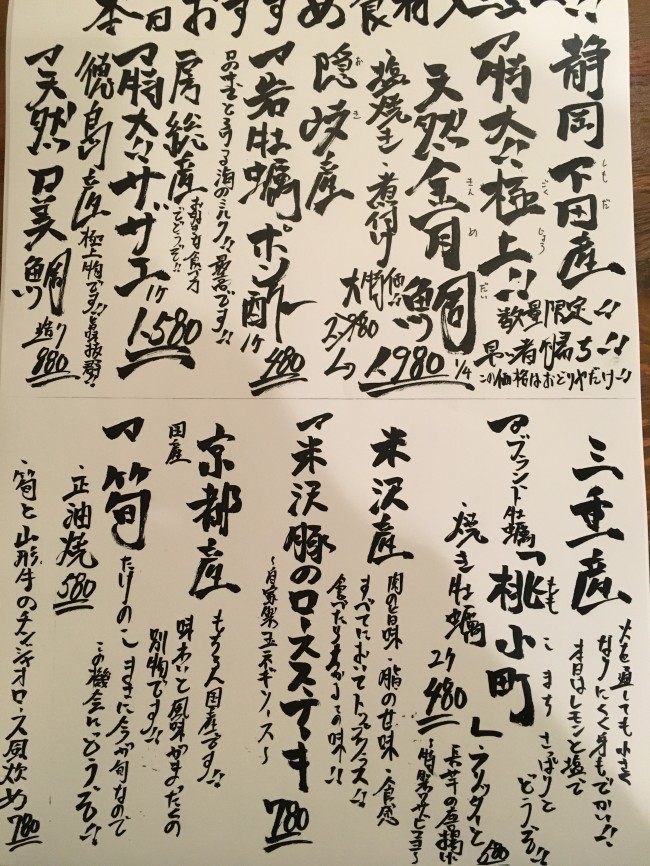 本日おすすめ食材入荷!!
静岡下田産
しもだ
特大!!極上!!
ごくじょう
数量限定!!
早い者勝ち!!
この価格はおどりやだけ!!
天然金目鯛
きんめだい
1/4
・塩焼き・煮付け
大特価!!
2,980
1,980
隠岐産
おき
岩牡蠣ポン酢
1ケ
480
口の中でとろける海のミルク!!最高です!!
房総産
お好きな食べ方でどうぞ!!
特大!!サザエ
1ケ
1,580
徳島産
極上物です!!
天然日美鯛
造り
880
三重産
火を通しても小さくなりにくく身もでかい!!
本日はレモンと塩でさっぱりとどうぞ!!
ブランド牡蠣「桃小町」
ももこまち
・焼き牡蠣
2ケ
480
長芋の唐揚げ
米沢産
肉の旨味・脂の甘味・食感
すべてにおいてトップクラス!!
食べたりますか?この味!!
米沢豚のロースステーキ
〜自家製玉ネギソース〜
780
京都産
もちろん国産です!!
味わいと風味がまったくの別物です!!
国産
筍
たけのこ
まさに今が旬なのでこの機会にどうぞ!!
・正油焼
580
・筍と山形牛のチンジャオロース風炒め
780